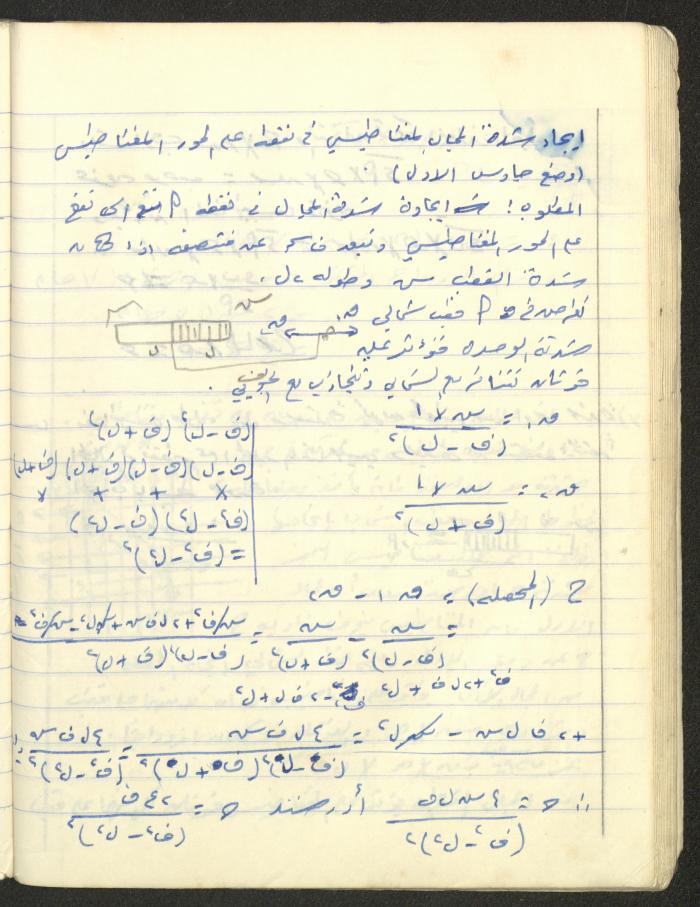 ايجاد شدة المجال المغناطيسي في نقطة على المحور المغناطيسي
(وضع جاوس الاول)
المطلوب: ايجاد شدة المجال في نقطة P تقع
على المحور المغناطيسي وتبعد ف سم عن منتصفه اذا كان
شدة القطب س وطوله ٢ل.
نفرض في P قطب شمالي
شدته الوحدة فتؤثر عليه
س
ق٢ ق١
P
ل ل
قوتان تتنافر مع الشمالي وتتجاذب مع الجنوبي.
ق١ = س × ١ / (ف - ل)٢
ق٢ = س × ١ / (ف + ل)٢
(ف - ل)٢ (ف + ل)٢
(ف - ل)(ف - ل)(ف + ل)(ف + ل)
× × × ×
(ف٢ - ل٢)(ف٢ - ل٢)
= (ف٢ - ل٢)٢
ح (المحصلة) = ق١ - ق٢
= س / (ف - ل)٢ - س / (ف + ل)٢ = س ف٢ + ٢ ل ف س + س ل٢ - س ف٢ / (ف - ل)٢ (ف + ل)٢
ف٢ + ٢ ل ف + ل٢ ف٢ - ٢ ف ل + ل٢
+ ٢ ف ل س - س ل٢ = ٤ ل ف س / (ف - ل)٢ (ف + ل)٢ = ٤ ل ف س / (ف٢ - ل٢)٢
∴ ح = ٤ س ل ف / (ف٢ - ل٢)٢ أورستد ح = ٢ ع ف / (ف٢ - ل٢)٢